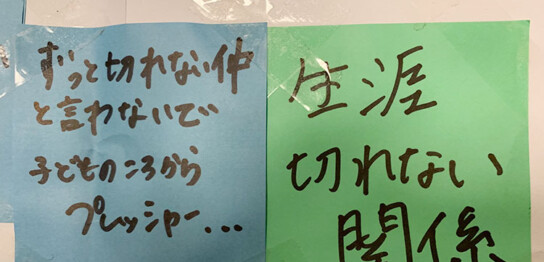 ずっと切れない仲
と言わないでい
子どものころから
プレッシャー...
生涯
切れない
関係